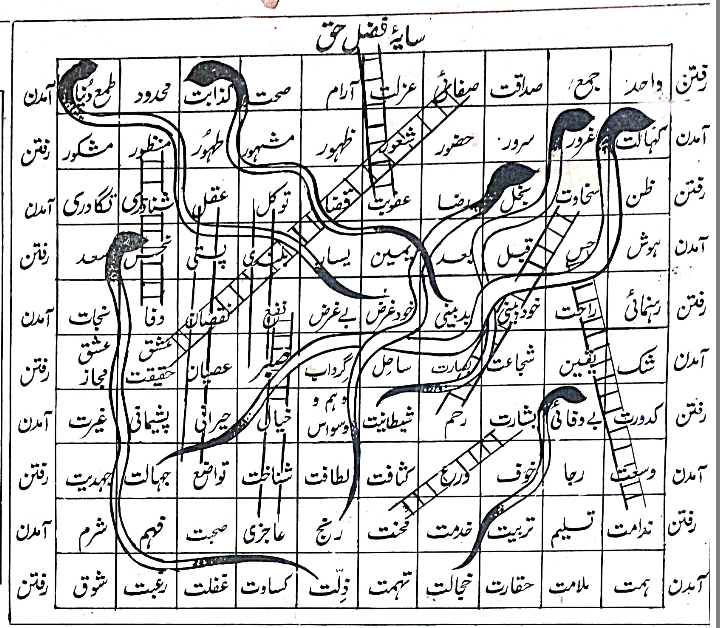 سایۂ فضل حق
رفتن واحد جمع صداقت صفائی عزلت آرام صحت کذابت محدود طمع دنیا آمدن
آمدن کہالت غرور سرور حضور شعور ظہور مشہور طہور منظور مشکور رفتن
رفتن ظن سخاوت بخل رضا عقوبت قضا توکل عقل شناوری نگاداری آمدن
آمدن ہوش حرص قبل بعد یمین یسار بلندی پستی نحس سعد رفتن
رفتن رہنمائی راحت خودبینی بدبینی خودغرض بےغرض نفع نقصان وفا نجات آمدن
آمدن شک یقین شجاعت بصارت ساحل گرداب صبر عصیان عشق حقیقت عشق مجاز رفتن
رفتن کدورت بےوفائی بشارت رحم شیطانیت وہم و وسواس خیالی حیرانی پشیمانی غیرت آمدن
آمدن وسعت رجا خوف ورع کثافت لطافت شناخت تواضع جہالت رفتن
رفتن ندامت تسلیم تربیت خدمت محنت رنج عاجزی صحبت فہم شرم آمدن
آمدن ہمت ملامت حقارت خجالت تہمت ذلّت کساوت غفلت رغبت شوق رفتن